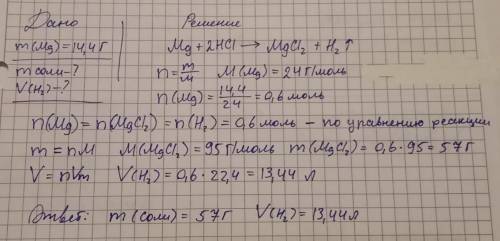 Дано
m(Mg)=14,4 г
m соли-?
V(H₂)-?
Решение
Mg+2HCl → MgCl₂+H₂↑
n=m/M M(Mg)=24 г/моль
n(Mg)=14,4/24=0,6 моль
n(Mg)=n(MgCl₂)=n(H₂)=0,6 моль – по уравнению реакции
m=nM M(MgCl₂)=95 г/моль m(MgCl₂)=0,6·95=57 г
V=nVm V(H₂)=0,6·22,4=13,44 л
Ответ: m(соли)=57 г V(H₂)=13,44 л